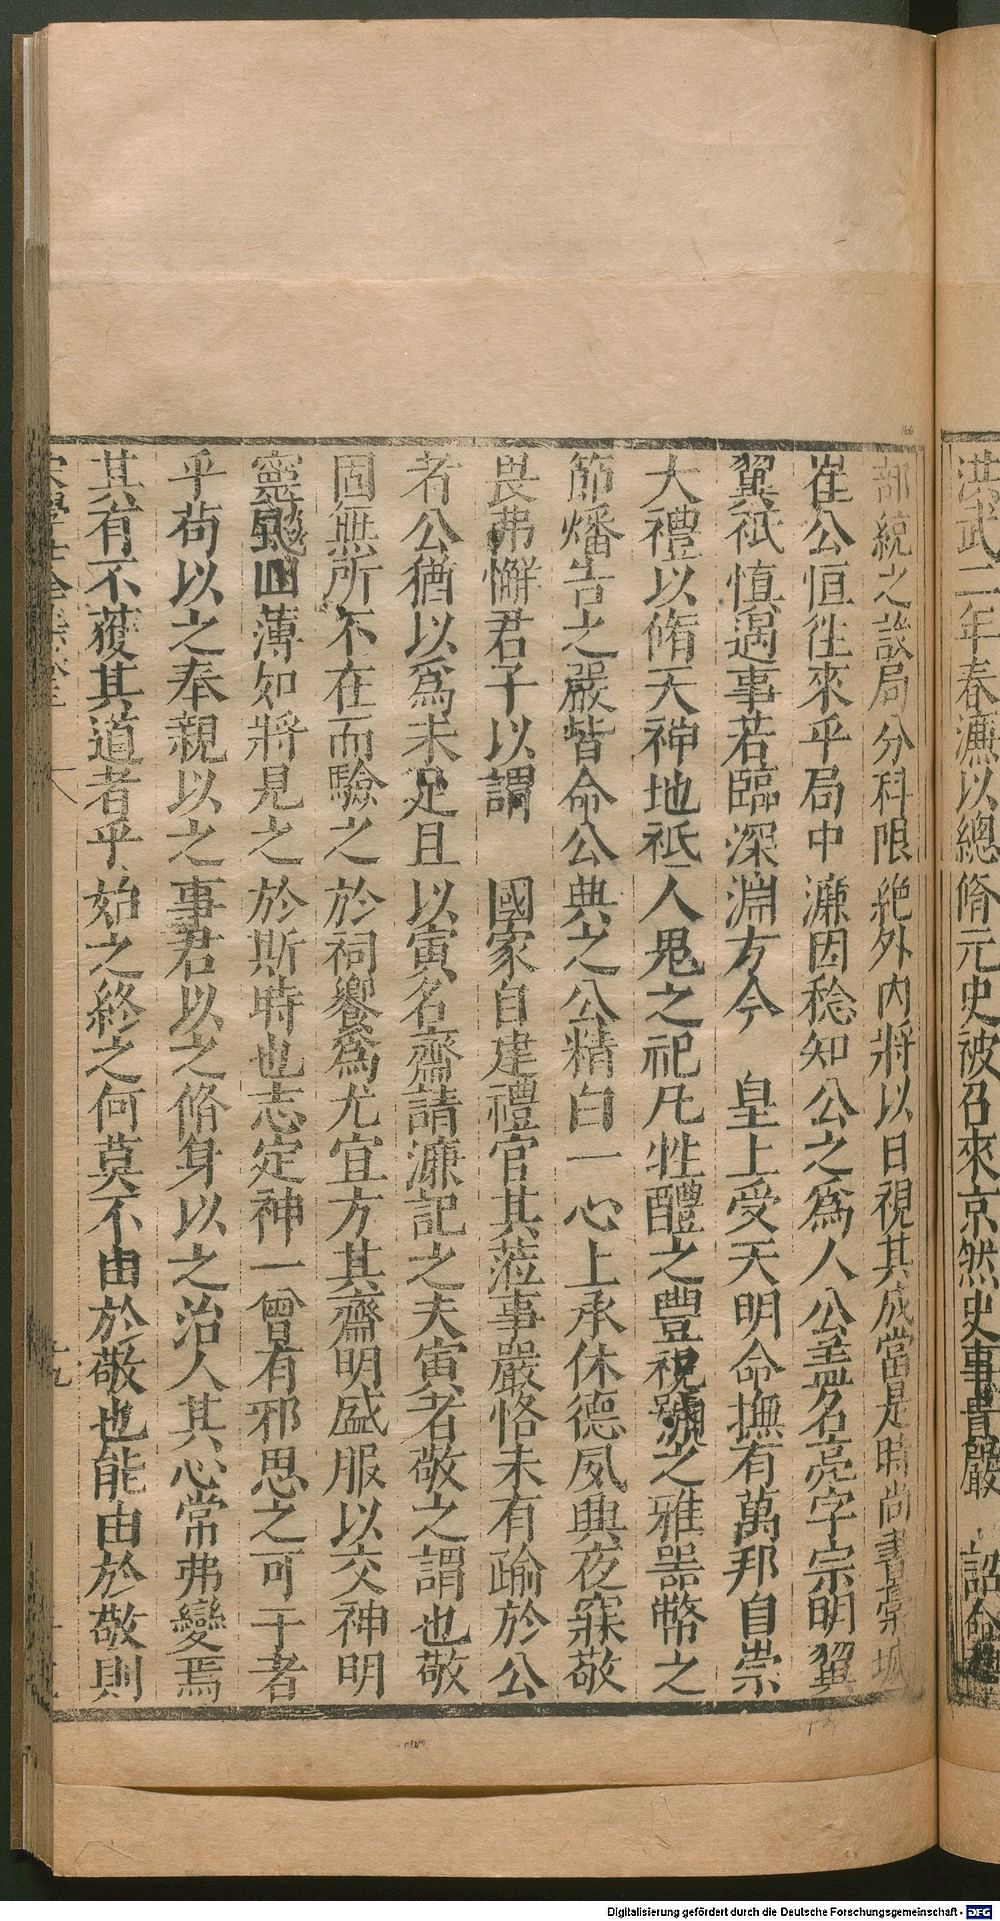 洪武二年春濂以總脩元史被召來京然史事貴嚴　詔命
部統之設局分科限絶外内將以日視其成當是時尚書棠城
崔公恒往來乎局中濂因稔知公之爲人公葢名亮字宗明翼
翼祇慎遇事若臨深淵方今　皇上受天明命撫有萬邦自崇
大禮以脩天神地祇人鬼之祀凡牲醴之豐祝號之雅噐幣之
節燔告之嚴皆命公典之公精白一心上承休德夙興夜寐敬
畏弗懈君子以謂　國家自建禮官其蒞事嚴恪未有踰於公
者公猶以爲未足且以寅名齋請濂記之夫寅者敬之謂也敬
固無所不在而驗之於祠饗爲尤宜方其齋明盛服以交神明
靈飈回薄如將見之於斯時也志定神一曾有邪思之可干者
乎苟以之奉親以之事君以之脩身以之治人其心常弗變焉
其有不獲其道者乎始之終之何莫不由於敬也能由於敬則
166
Digitalisierung gefördert durch die Deutsche Forschungsgemeinschaft - DFG